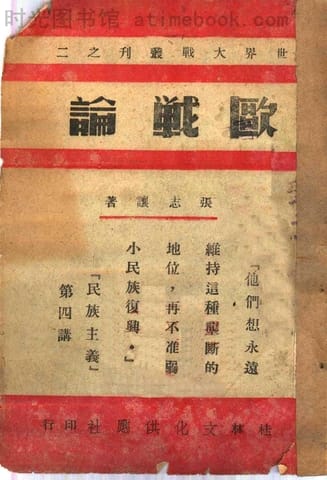 时光图书馆 - atimebook.com
世界大戰叢刊之二
歐戰論
張志讓著
「他們想永遠
維持這種壟斷的
地位，再不准弱
小民族復興。」
「民族主義」
第四講
桂林文化供應社印行